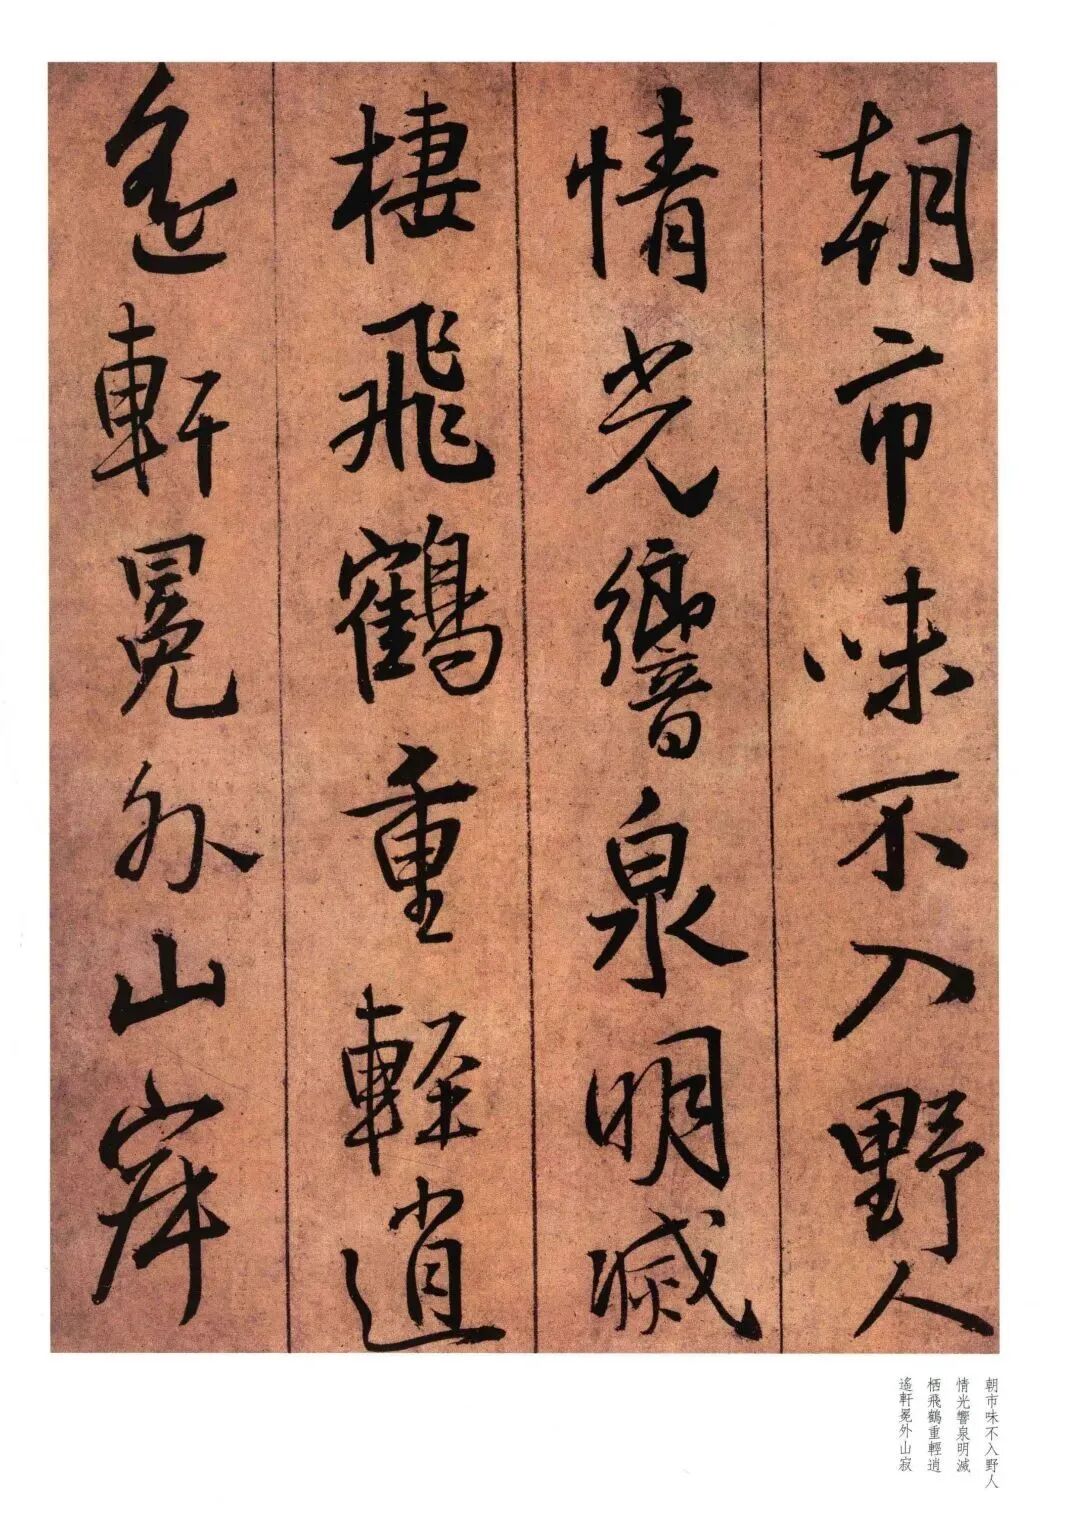 朝市味不入野人
情光響泉明滅
棲飛鶴重輕逍
遙軒冕外山寂
朝市味不入野人
情光響泉明滅
栖飛鶴重輕逍
遙軒冕外山寂